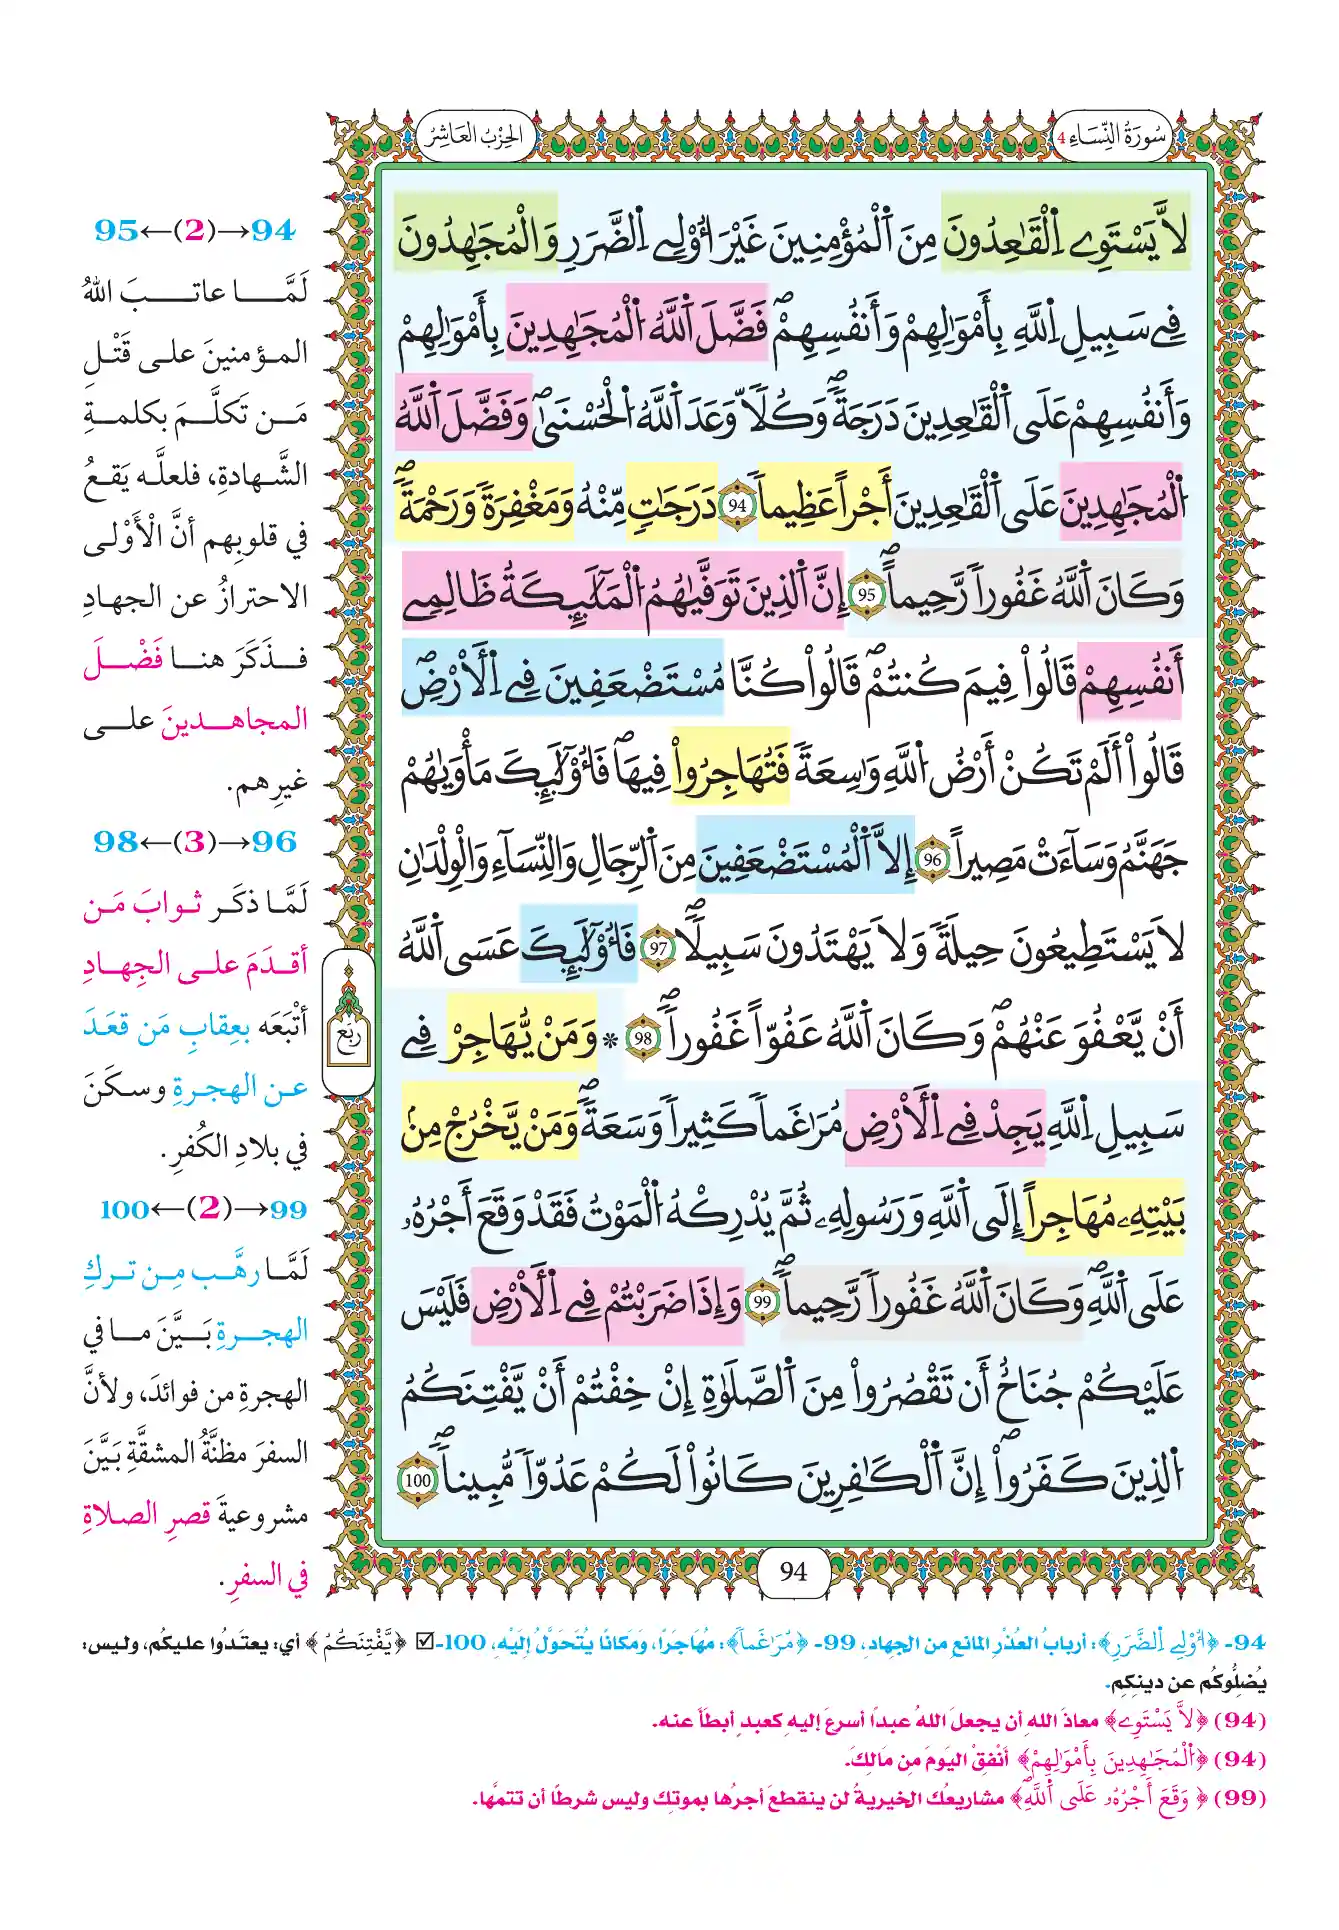 سُورَةُ النِّسَاءِ 4
الحِزْبُ العَاشِرُ
لاَّ يَسْتَوِے اِ۬لْقَٰعِدُونَ مِنَ اَ۬لْمُؤْمِنِينَ غَيْرَ أُوْلِے اِ۬لضَّرَرِ وَالْمُجَٰهِدُونَ
فِے سَبِيلِ اِ۬للَّهِ بِأَمْوَٰلِهِمْ وَأَنفُسِهِمْۖ فَضَّلَ اَ۬للَّهُ اُ۬لْمُجَٰهِدِينَ بِأَمْوَٰلِهِمْ
وَأَنفُسِهِمْ عَلَي اَ۬لْقَٰعِدِينَ دَرَجَةٗۖ وَكُلّاٗ وَعَدَ اَ۬للَّهُ اُ۬لْحُسْنَيٰۖ وَفَضَّلَ اَ۬للَّهُ
اُ۬لْمُجَٰهِدِينَ عَلَي اَ۬لْقَٰعِدِينَ أَجْراً عَظِيماٗ 94 دَرَجَٰتٖ مِّنْهُ وَمَغْفِرَةٗ وَرَحْمَةٗۖ
وَكَانَ اَ۬للَّهُ غَفُوراٗ رَّحِيماًۖ 95 إِنَّ اَ۬لذِينَ تَوَفَّيٰهُمُ اُ۬لْمَلَٰٓئِكَةُ ظَالِمِے
أَنفُسِهِمْ قَالُواْ فِيمَ كُنتُمْۖ قَالُواْ كُنَّا مُسْتَضْعَفِينَ فِے اِ۬لَارْضِۖ
قَالُواْ أَلَمْ تَكُنَ اَرْضُ اُ۬للَّهِ وَٰسِعَةٗ فَتُهَاجِرُواْ فِيهَاۖ فَأُوْلَٰٓئِكَ مَأْوَيٰهُمْ
جَهَنَّمُ وَسَآءَتْ مَصِيراً 96 اِلاَّ اَ۬لْمُسْتَضْعَفِينَ مِنَ اَ۬لرِّجَالِ وَالنِّسَآءِ وَالْوِلْدَٰنِ
لاَ يَسْتَطِيعُونَ حِيلَةٗ وَلاَ يَهْتَدُونَ سَبِيلاٗۖ 97 فَأُوْلَٰٓئِكَ عَسَي اَ۬للَّهُ
أَنْ يَّعْفُوَ عَنْهُمْۖ وَكَانَ اَ۬للَّهُ عَفُوّاً غَفُوراٗۖ 98 * وَمَنْ يُّهَاجِرْ فِے
سَبِيلِ اِ۬للَّهِ يَجِدْ فِے اِ۬لَارْضِ مُرَٰغَماٗ كَثِيراٗ وَسَعَةٗۖ وَمَنْ يَّخْرُجْ مِنۢ
بَيْتِهِۦ مُهَاجِراً اِلَي اَ۬للَّهِ وَرَسُولِهِۦ ثُمَّ يُدْرِكْهُ اُ۬لْمَوْتُ فَقَدْ وَقَعَ أَجْرُهُۥ
عَلَي اَ۬للَّهِۖ وَكَانَ اَ۬للَّهُ غَفُوراٗ رَّحِيماٗۖ 99 وَإِذَا ضَرَبْتُمْ فِے اِ۬لَارْضِ فَلَيْسَ
عَلَيْكُمْ جُنَاحٌ أَن تَقْصُرُواْ مِنَ اَ۬لصَّلَوٰةِ إِنْ خِفْتُمْ أَنْ يَّفْتِنَكُمُ
اُ۬لذِينَ كَفَرُواْۖ إِنَّ اَ۬لْكَٰفِرِينَ كَانُواْ لَكُمْ عَدُوّاٗ مُّبِيناٗۖ 100
ربع
94
94→(2)←95
لَمَّا عاتبَ اللهُ
المؤمنينَ على قَتْلِ
مَن تَكلَّمَ بكلمةِ
الشَّهادةِ، فلعلَّه يَقعُ
في قلوبِهم أنَّ الْأَوْلى
الاحترازُ عن الجهادِ
فذَكَرَ هنا فَضْلَ
المجاهدينَ على
غيرِهم.
96→(3)←98
لَمَّا ذكَر ثوابَ مَن
أقدَمَ على الجِهادِ
أتْبَعَه بعِقابِ مَن قعَدَ
عن الهجرةِ وسكَنَ
في بلادِ الكُفرِ.
99→(2)←100
لَمَّا رهَّب مِن تركِ
الهجرةِ بَيَّنَ ما في
الهجرةِ من فوائدَ، ولأنَّ
السفرَ مظنَّةُ المشقَّةِ بَيَّنَ
مشروعيةَ قصرِ الصلاةِ
في السفرِ.
94- ﴿أُوْلِے اِ۬لضَّرَرِ﴾: أربابُ العُذْرِ المانعِ من الجِهادِ، 99- ﴿مُرَٰغَماٗ﴾: مُهَاجَرًا، وَمَكَانًا يُتَحَوَّلُ إِلَيْهِ، 100- ☑ ﴿يَّفْتِنَكُمُ﴾ أي: يعتَدُوا عليكُم، وليس:
يُضلُّوكُم عن دينِكِم.
(94) ﴿لاَّ يَسْتَوِے﴾ معاذَ اللهِ أن يجعلَ اللهُ عبدًا أسرعَ إليهِ كعبدٍ أبطأَ عنه.
(94) ﴿اُ۬لْمُجَٰهِدِينَ بِأَمْوَٰلِهِمْ﴾ أنْفِقْ اليَومَ مِن مَالِكَ.
(99) ﴿وَقَعَ أَجْرُهُۥ عَلَي اَ۬للَّهِۖ﴾ مشاريعُك الخيريةُ لن ينقطعَ أجرُها بموتِك وليس شرطًا أن تتمَّها.